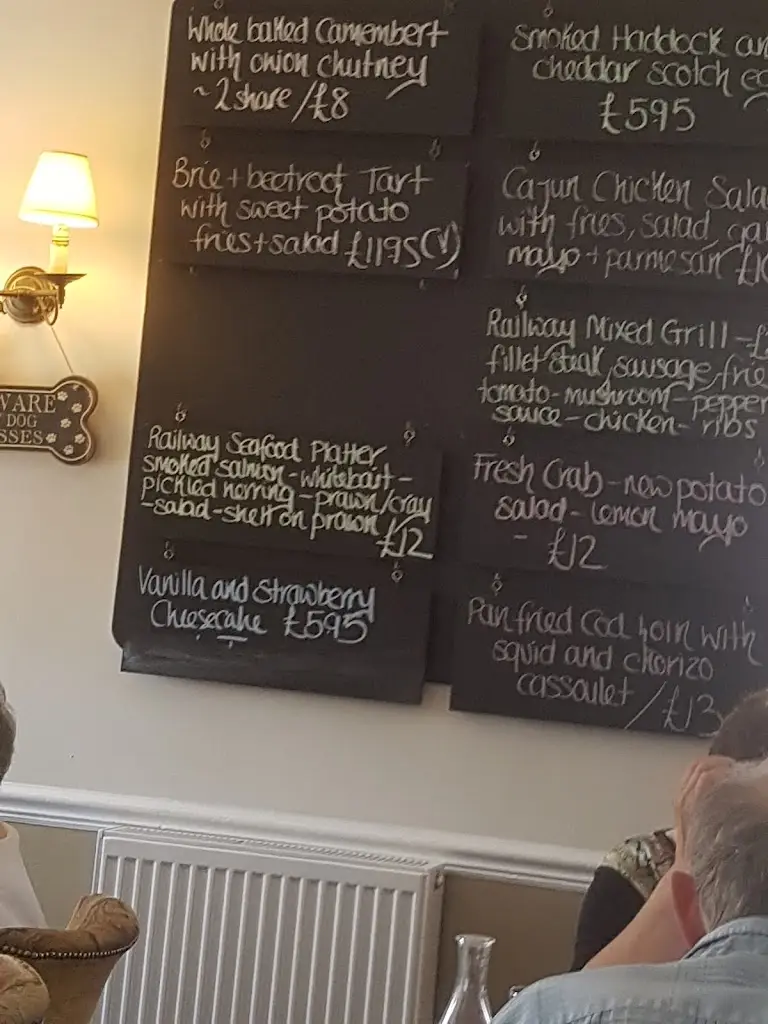 Whole baked Camembert
with onion chutney
~2 share /£8
Brie + beetroot Tart
with sweet potato
fries + salad £1195 (V)
Railway Seafood Platter
smoked salmon - whitebait -
pickled herring - prawn/cray
- salad - shell on prawn
£12
Vanilla and Strawberry
Cheesecake £595
Smoked Haddock an
cheddar scotch
£595
Cajun Chicken Sala
with fries, salad, ga
mayo + parmesan
Railway Mixed Grill -£
fillet steak, sausage, frie
tomato - mushroom - pepper
sauce - chicken - ribs
Fresh Crab - new potato
salad - lemon mayo
- £12
Pan fried Cod loin with
squid and chorizo
cassoulet /£13
WARE
DOG
SSES